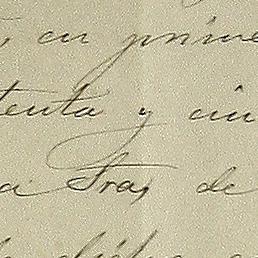 , en prime
tenta y cin
a Sra, de